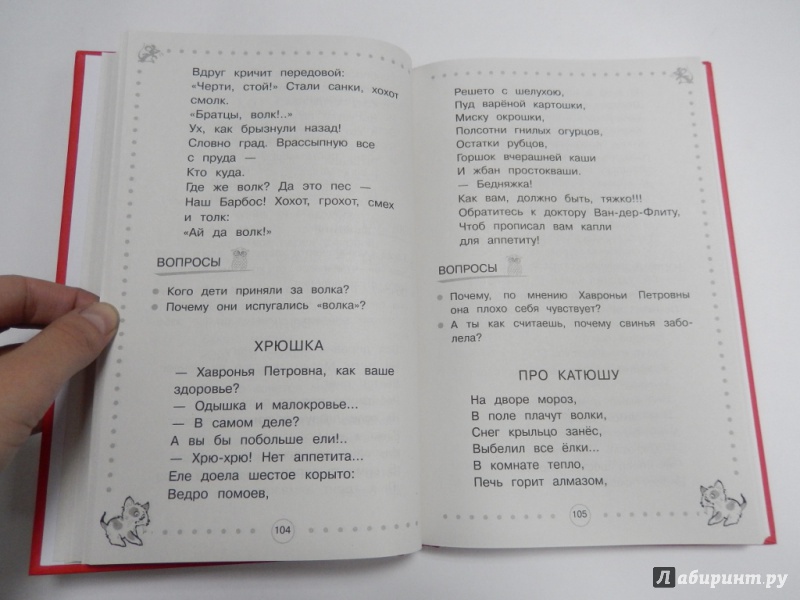 Вдруг кричит передовой:
«Черти, стой!» Стали санки, хохот
смолк.
«Братцы, волк!..»
Ух, как брызнули назад!
Словно град. Врассыпную все
с пруда —
Кто куда.
Где же волк? Да это пес —
Наш Барбос! Хохот, грохот, смех
и толк:
«Ай да волк!»
ВОПРОСЫ
Кого дети приняли за волка?
Почему они испугались «волка»?
ХРЮШКА
— Хавронья Петровна, как ваше
здоровье?
— Одышка и малокровье...
— В самом деле?
А вы бы побольше ели!..
— Хрю-хрю! Нет аппетита...
Еле доела шестое корыто:
Ведро помоев,
104
Решето с шелухою,
Пуд варёной картошки,
Миску окрошки,
Полсотни гнилых огурцов,
Остатки рубцов,
Горшок вчерашней каши
И жбан простокваши.
— Бедняжка!
Как вам, должно быть, тяжко!!!
Обратитесь к доктору Ван-дер-Флиту,
Чтоб прописал вам капли
для аппетиту!
ВОПРОСЫ
Почему, по мнению Хавроньи Петровны
она плохо себя чувствует?
А ты как считаешь, почему свинья забо-
лела?
ПРО КАТЮШУ
На дворе мороз,
В поле плачут волки,
Снег крыльцо занёс,
Выбелил все ёлки...
В комнате тепло,
Печь горит алмазом,
105
Лабиринт.ру